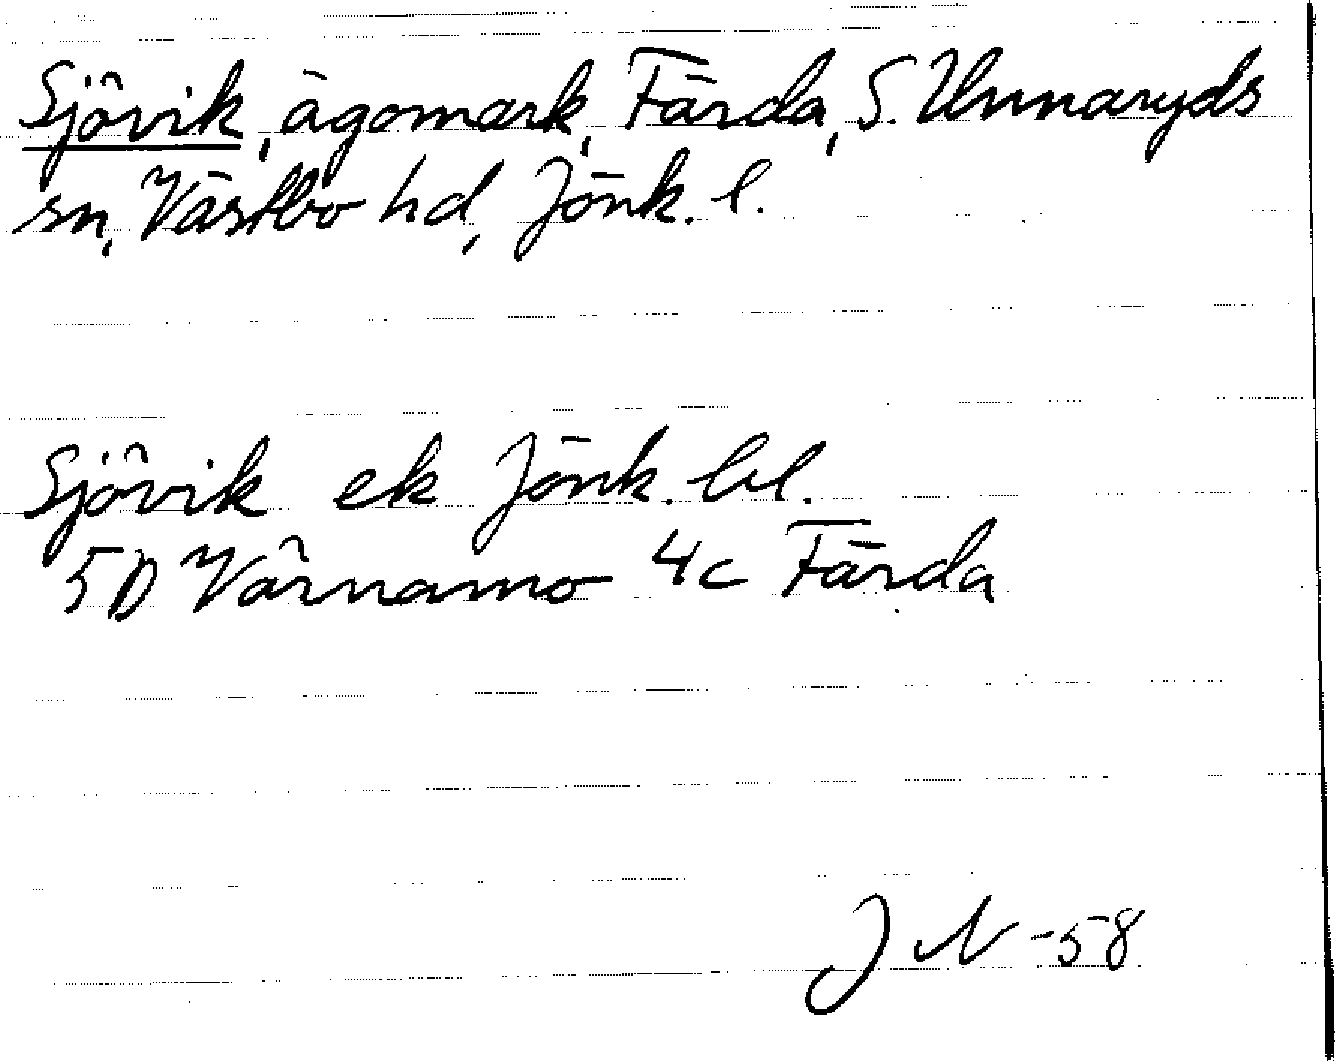 Sjövik, ägomark, Färda, S. Unnaryds
sn, Västbo hd, Jönk. l.
Sjövik ek Jönk. bl.
5D Värnamo 4c Färda
JN -58